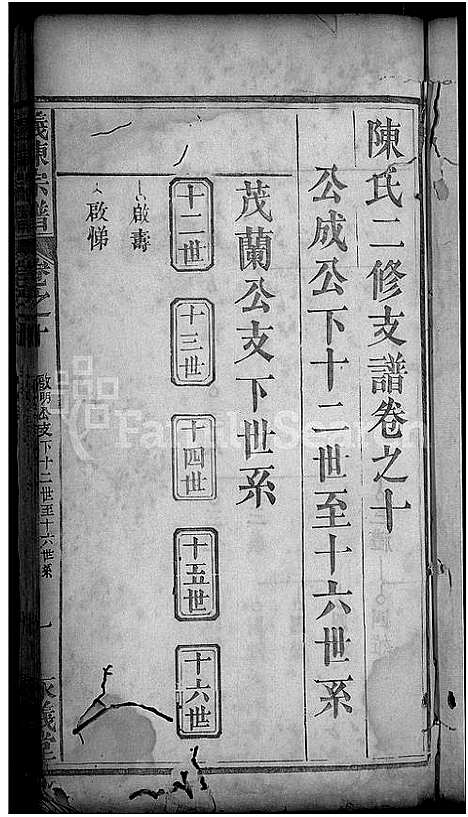 陳氏二修支譜卷之十
公成公下十二世至十六世系
茂蘭公支下世系
十二世 十三世 十四世 十五世 十六世
啟壽
啟悌
義陳宗譜 卷之十 啟明公支下十二世至十六世系 一 義堂
FamilySearch